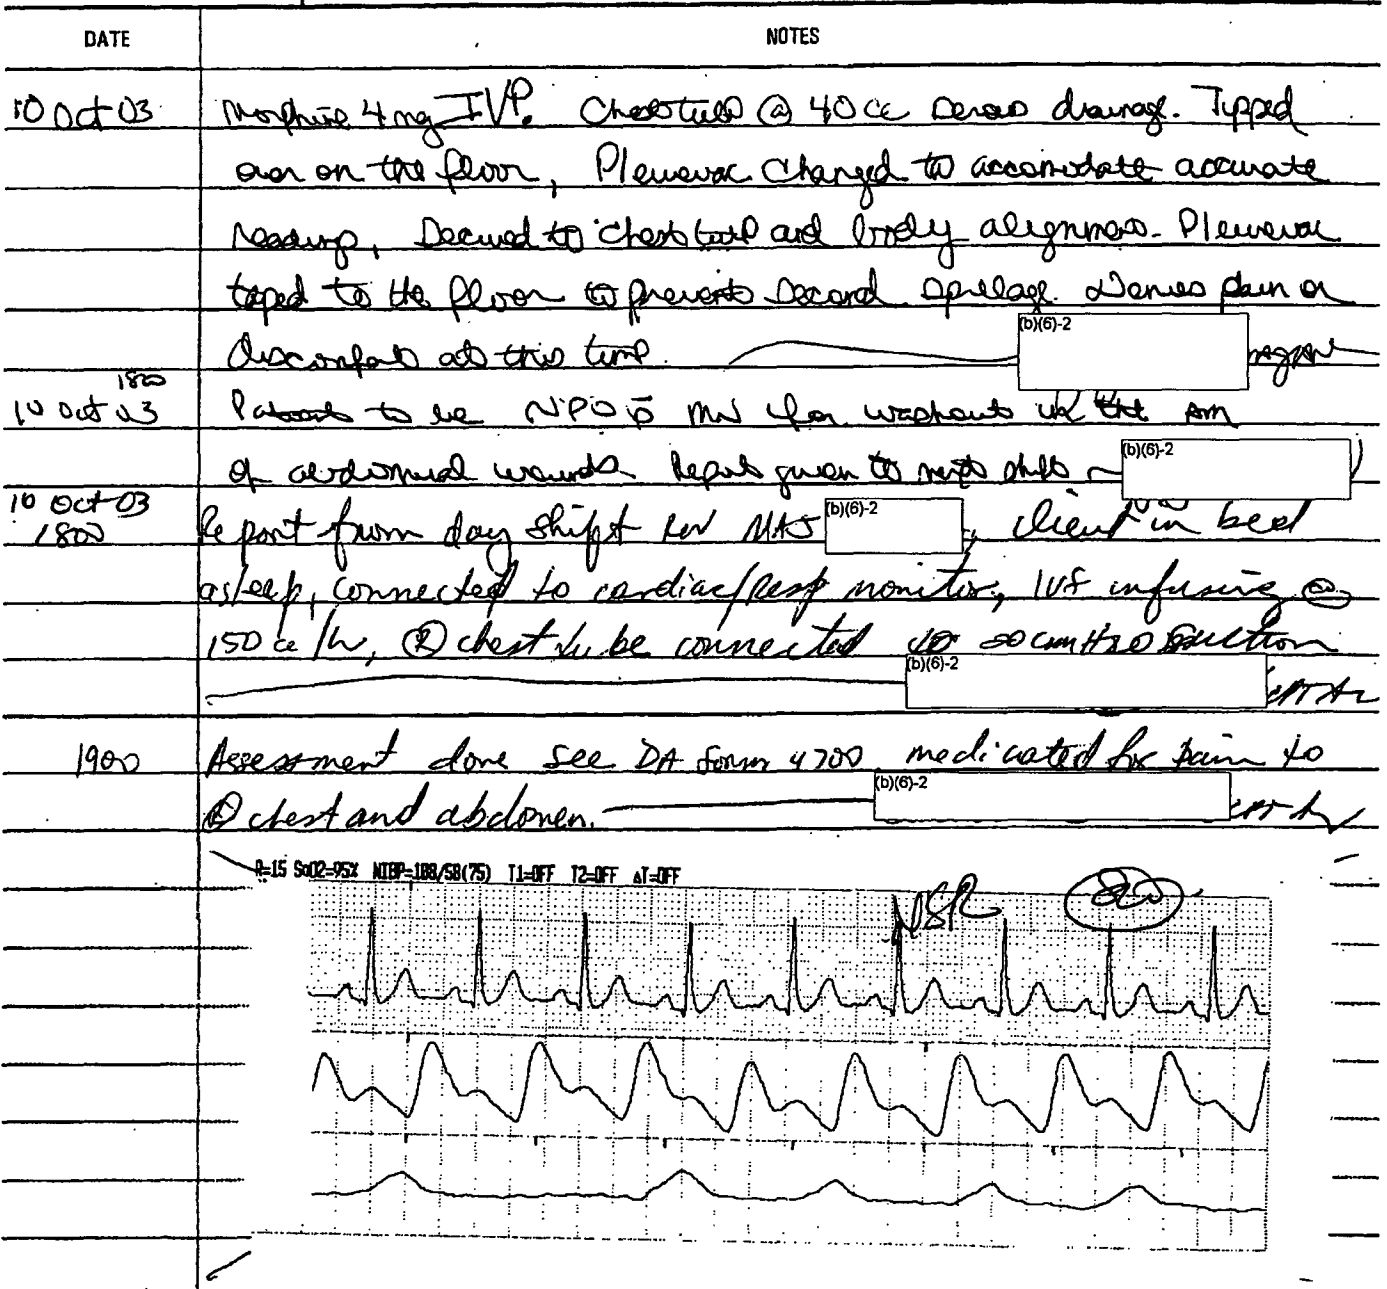 DATE NOTES
10 Oct 03 Morphine 4 mg IVP. Chest tube @ 40 cc serous drainage. Tipped
over on the floor, Pleuevac changed to accomodate accurate
reading, Secured to chest tube and body alignment. Pleuevac
taped to the floor to prevent second spillage. Denies pain or
discomfort at this time. (b)(6)-2
1800
10 Oct 03 Patient to be NPO p̄ MN for washout in the Am
of abdominal wounds. Report given to next shift (b)(6)-2
10 Oct 03
1800 Report from day shift RN MAJ (b)(6)-2, client in bed
asleep, connected to cardiac/resp monitor, IVF infusing @
150 cc/hr, Ⓡ chest tube connected to 20 cm H2O suction
(b)(6)-2
1900 Assessment done see DA form 4700 medicated for pain to
Ⓡ chest and abdomen. (b)(6)-2
R=15 SaO2=95% NIBP=108/58(75) T1=OFF T2=OFF ΔT=OFF
NSR